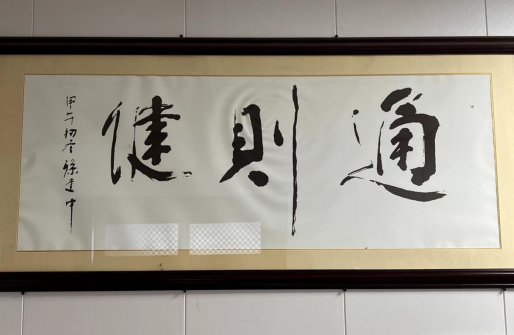 通則健
甲午初冬徐建中